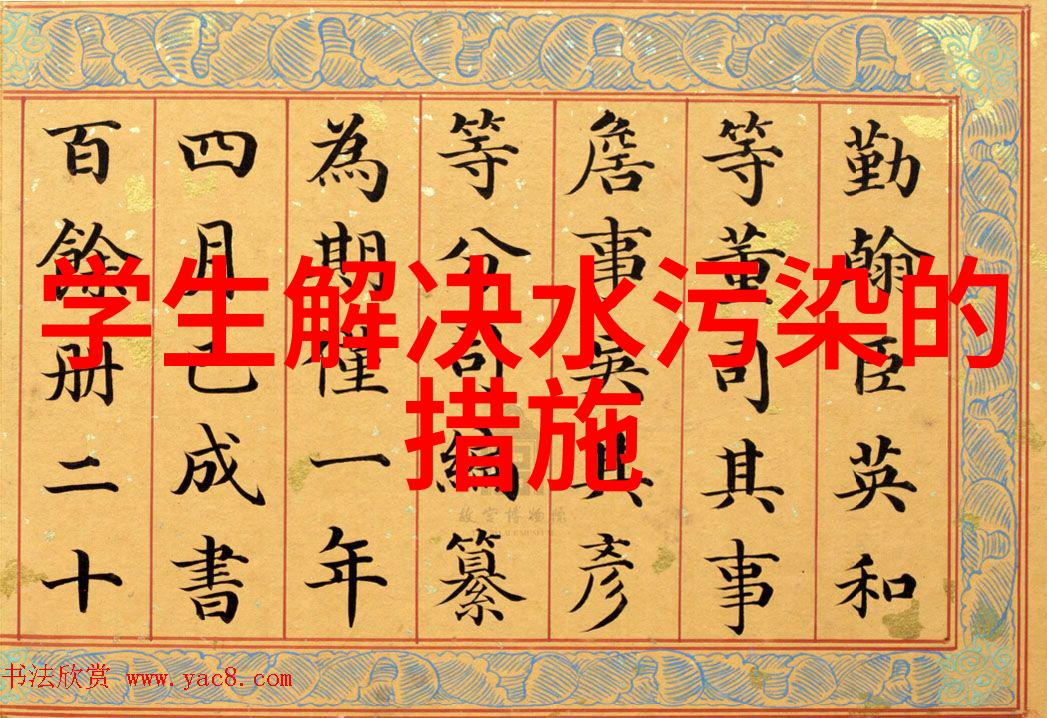 学生解决水污染的
措施
勤翰臣英和
等董司其事
詹事吳其彥
等分司編纂
為期僅一年
四月已成書
百餘册二十
故宫博物院
书法欣赏 www.yac8.com